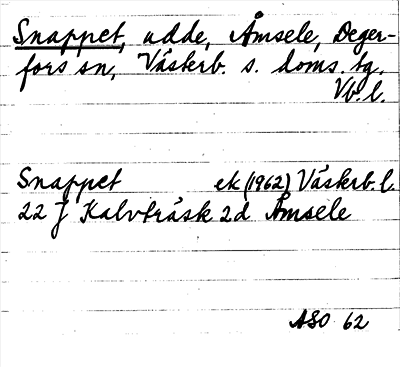 Snappet, udde, Åmsele, Deger-
fors sn, Västerb. s. doms. tg.
Vb. l.
Snappet ek (1962) Västerb. l.
22 J Kalvträsk 2d Åmsele
ASO 62